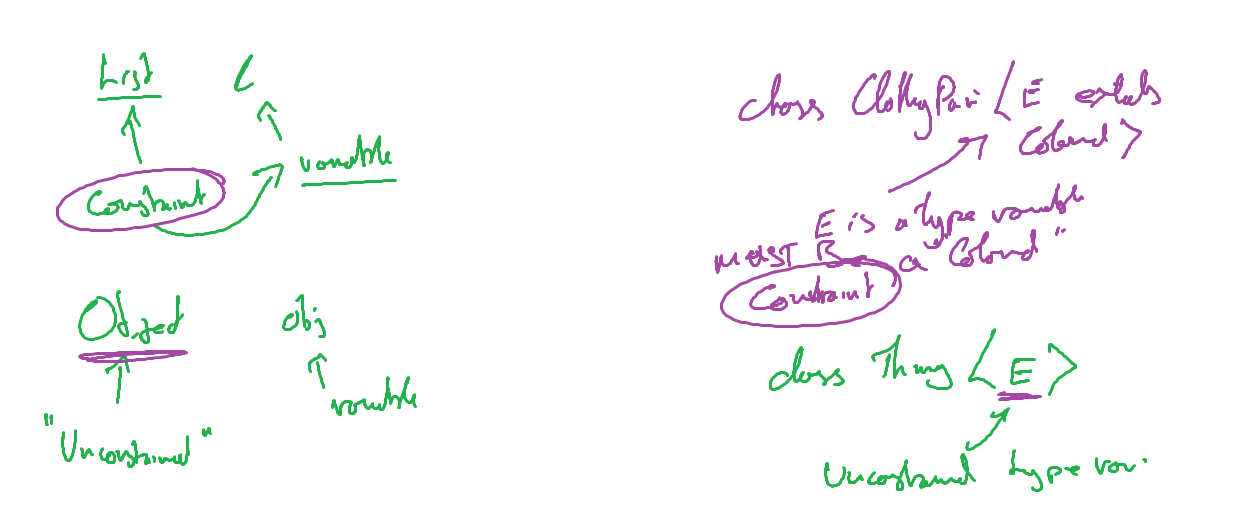 List l
variable
Constraint
Object obj
variable
"Unconstrained"
class ClothingPair <E extends
Colored>
E is a type variable
must be a "Colored"
Constraint
class Thing <E>
Unconstrained type var.